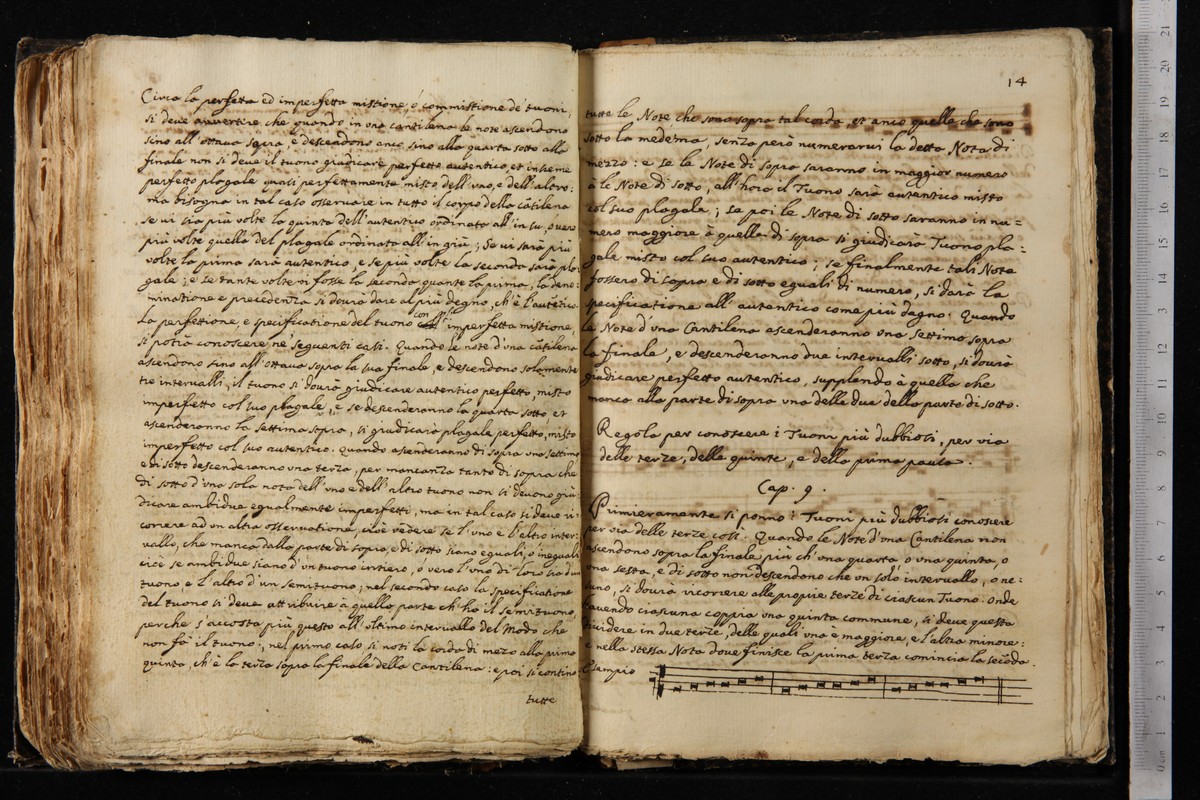 Circa la perfetta ed imperfetta mistione, ó commistione de tuoni,
si deve avvertire che quando in una cantilena le note ascendono
sino all'ottava sopra, e descendono anco sino alla quarta sotto alla
finale non si deve il tuono giudicare perfetto autentico, et insieme
perfetto plagale quasi perfettamente misto dell'uno, e dell'altro:
ma bisogna in tal caso osservare in tutto il corpo della cātilena
se vi sia più volte la quinta dell'autentico ordinata all'in su, ouero
più volte quella del plagale ordinata all'in giù; se ui sarà più
volte la prima sarà autentico, e se più volte la seconda sarà pla:
gale; e se tante volte vi fosse la seconda quante la prima, la deno:
minatione e precedenza si dourà dare al più degno, ch'è l'autētico.
La perfettione, e specificatione del tuono con imperfetta mistione,
si potrà conoscere ne seguenti casi. Quando le note d'una cātilena
ascendono sino all'ottava sopra la sua finale, e descendono solamente
tre intervalli, il tuono si dourà giudicare autentico perfetto, misto
imperfetto col suo plagale, e se descenderanno la quarta sotto, et
ascenderanno la settima sopra, si giudicarà plagale perfetto, misto
imperfetto col suo autentico. Quando ascenderanno di sopra una settima
e di sotto descenderanno una terza, per mancanza tanto di sopra che
di sotto d'una sola nota dell'uno e dell'altro tuono non si deuono giu:
dicare ambidue egualmente imperfetti, ma in tal caso si deve ri:
correre ad un altra osservatione, cioè vedere se l'uno e l'altro inter:
vallo, che manca dalla parte di sopra, e di sotto siano eguali, o ineguali
cioè se ambidue siano d'un tuono intiero, o vero l'uno di loro sia d'un
tuono e l'altro d'un semituono; nel secondo caso la specificatione
del tuono si deve attribuire à quella parte ch'hà il semituono
perche s'accosta più questo all'ultimo intervallo del Modo che
non fà il tuono; nel primo caso si noti la corda di mezo alla prima
quinta, ch'è la terza sopra la finale della Cantilena: e poi si contino
tutte
14
tutte le Note che sono sopra tal corda, et anco quelle che sono
sotto la medema, senza però numerarui la detta Nota di
mezzo: e se le Note di sopra saranno in maggior numero
à le Note di sotto, all'hora il Tuono sarà autentico misto
col suo plagale; se poi le Note di sotto saranno in nu=
mero maggiore à quelle di sopra si giudicarà Tuono pla:
gale misto col suo autentico; se finalmente tali Note
fossero di sopra e di sotto eguali di numero, si darà la
specificatione all'autentico come più degno. Quando
le Note d'una Cantilena ascenderanno una settima sopra
la finale, e descenderanno due intervalli sotto, si dourà
giudicare perfetto autentico, supplendo à quella che
manca alla parte di sopra una delle due della parte di sotto.
Regola per conoscere i Tuoni più dubbiosi, per via
delle terze, delle quinte, e della prima pausa.
Cap. 9.
Primieramente si ponno i Tuoni più dubbiosi conoscere
per via delle terze così. Quando le Note d'una Cantilena non
ascendono sopra la finale più ch'una quarta o una quinta, o
una sesta, e di sotto non descendono che un solo intervallo, o ne:
uno, si dourà ricorrere alle proprie terze di ciascun Tuono. Onde
hauendo ciascuna coppia una quinta commune, si deve questa
dividere in due terze, delle quali una è maggiore, e l'altra minore:
e nella stessa Nota doue finisce la prima terza comincia la secōda.
Esempio